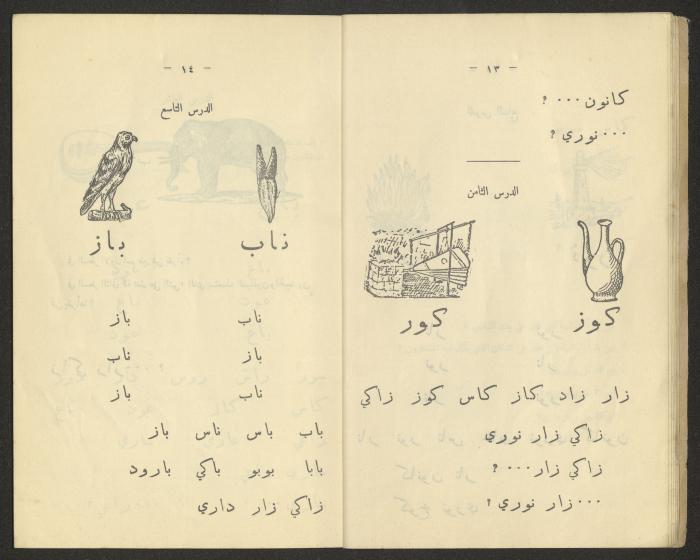 – ١٣ –
كانون ... ؟
... نوري ؟
الدرس الثامن
كوز كور
زار زاد كاز كاس كوز زاكي
زاكي زار نوري
زاكي زار ... ؟
... زار نوري ؟
– ١٤ –
الدرس التاسع
ناب باز
ناب باز
باز ناب
ناب باز
باب باس ناس باز
بابا بوبو باكي بارود
زاكي زار داري